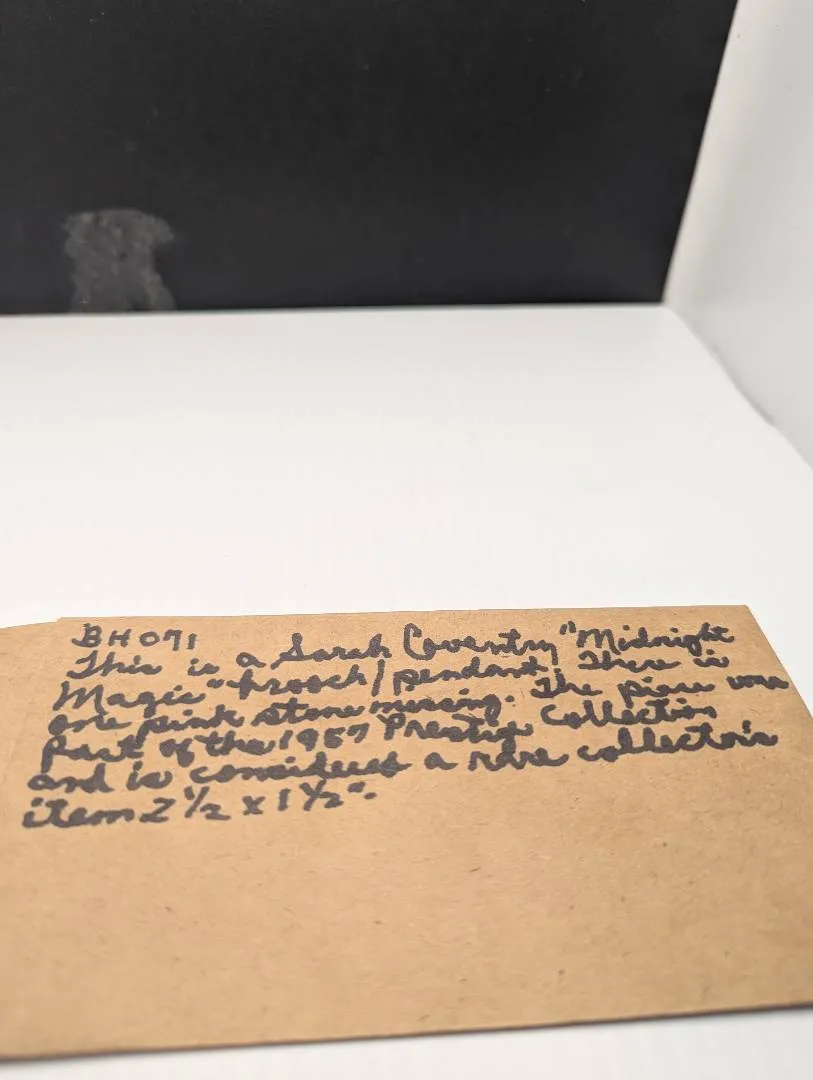 BH 071
This is a Sarah Coventry "Midnight
Magic" brooch/pendant. There is
one pink stone missing. The piece was
part of the 1957 Prestige Collection
and is considered a rare collector's
item 2 1/2 x 1 1/2".